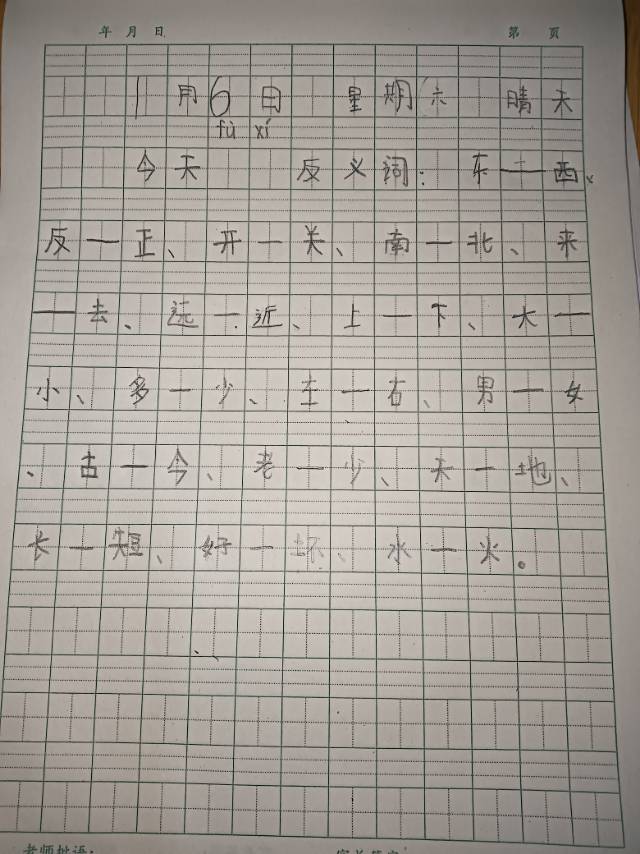 年 月 日 第 页
1月6日 星期六 晴天
fù xí
今天 反义词: 东一西、
反一正、开一关、南一北、来
一去、远一近、上一下、大一
小、多一少、左一右、男一女
、古一今、老一少、天一地、
长一短、好一坏、水一火。
老师批语: